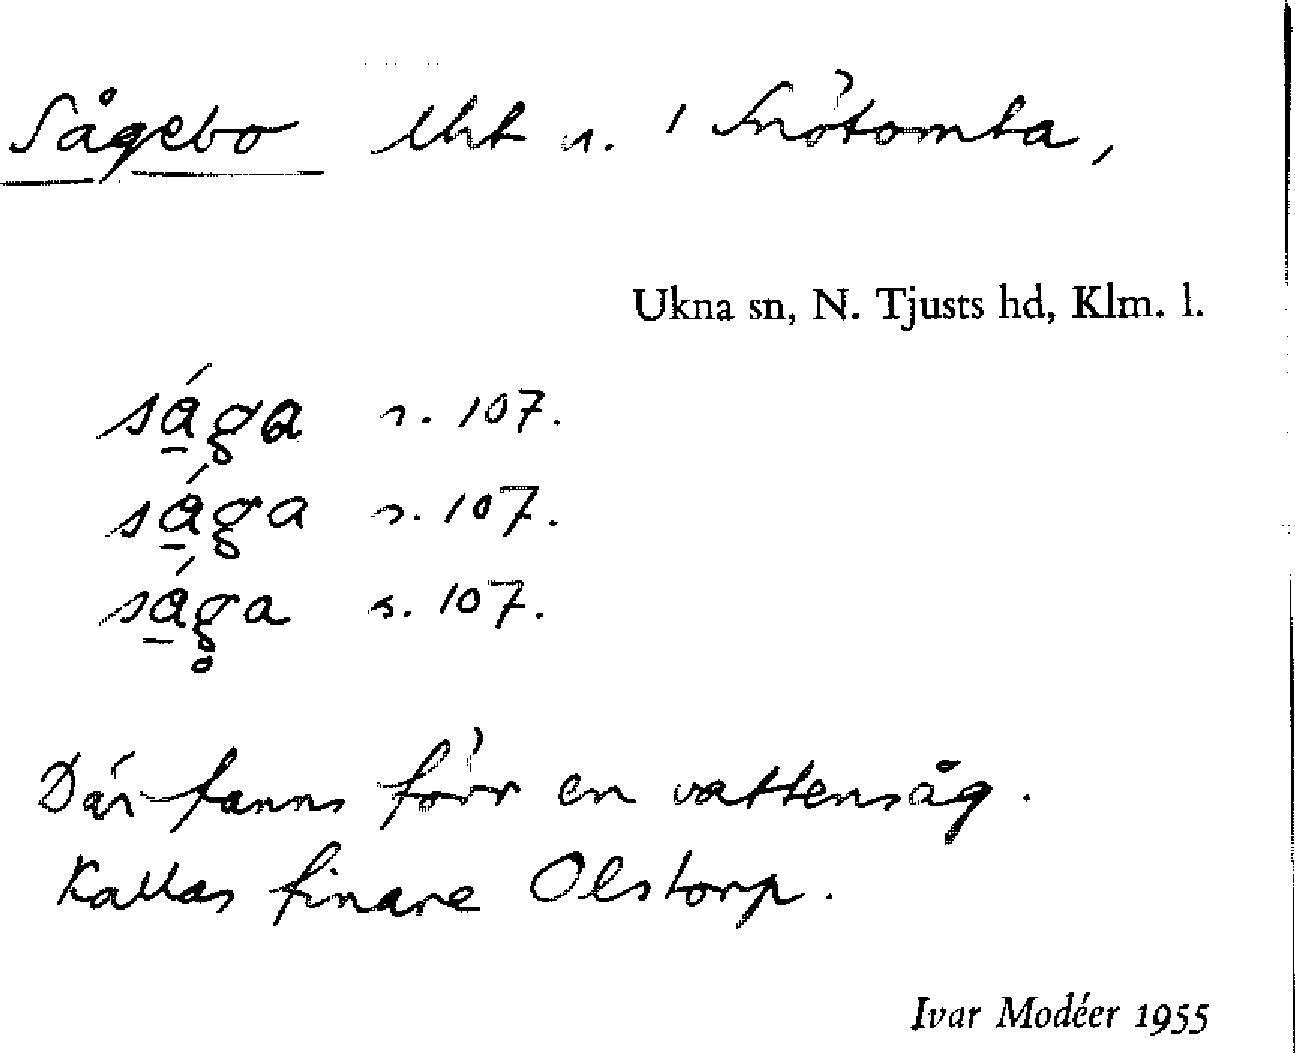 Sågebo lht u. Snötomta,
Ukna sn, N. Tjusts hd, Klm. l.
såga s. 107.
såga s. 107.
såga s. 107.
Där fanns förr en vattensåg.
Kallas finare Olstorp.
Ivar Modéer 1955